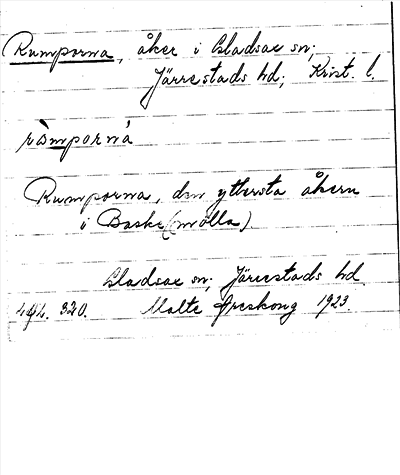 Rumporna, åker i Gladsax sn;
Järrestads hd; Krist. l.
ròmporná
Rumporna, den yttersta åkern
i Baske(mölla).
Gladsax sn; Järrestads hd.
320. Malte Areskoug 1923.